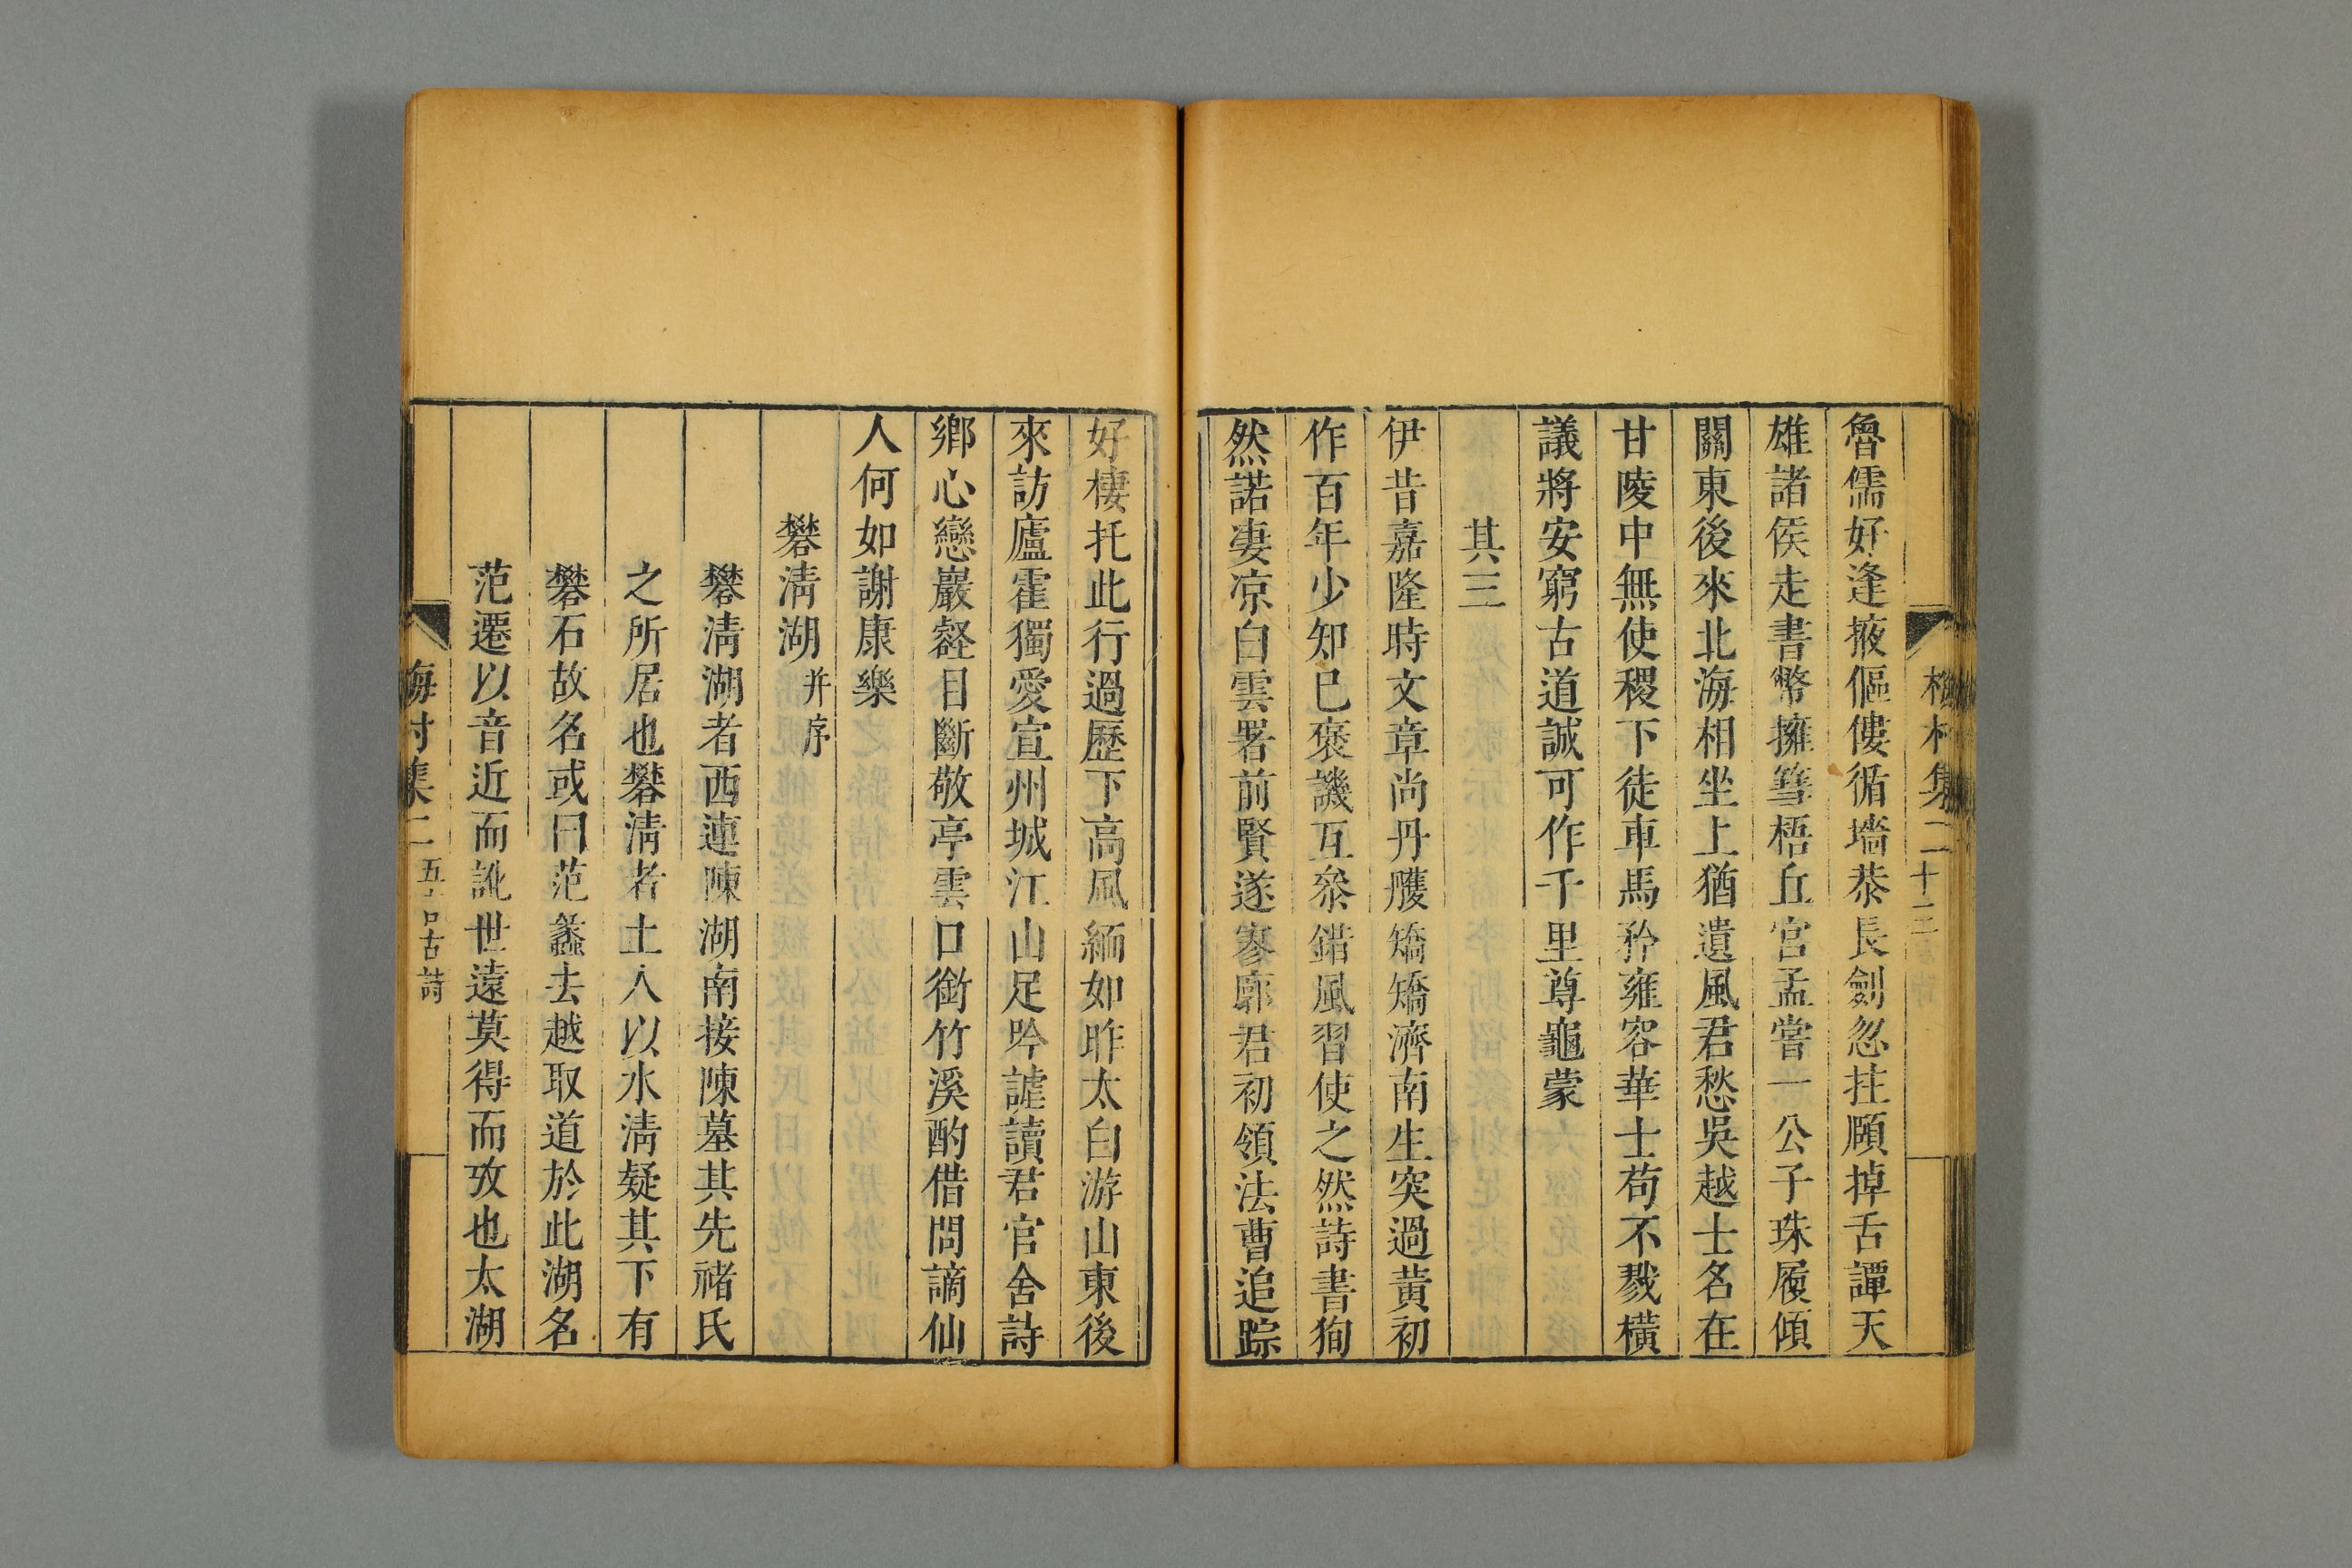 魯儒好逢掖傴僂循墻恭長劍忽拄頤掉舌譚天
雄諸侯走書幣擁篲梧丘宮孟嘗一公子珠履傾
關東後來北海相坐上猶遺風君愁吳越士名在
甘陵中無使稷下徒車馬矜雍容華士苟不戮橫
議將安窮古道誠可作千里尊龜蒙
其三
伊昔嘉隆時文章尚丹雘矯矯濟南生突過黃初
作百年少知已褒譏互叅錯風習使之然詩書狥
然諾凄凉白雲署前賢遂寥廓君初領法曹追踪
好棲托此行過歷下高風緬如昨太白游山東後
來訪廬霍獨愛宣州城江山足吟謔讀君官舍詩
鄉心戀巖壑目斷敬亭雲口銜竹溪酌借問謫仙
人何如謝康樂
礬淸湖并序
礬淸湖者西連陳湖南接陳墓其先禇氏
之所居也礬淸者土人以水淸疑其下有
礬石故名或曰范蠡去越取道於此湖名
范遷以音近而訛世遠莫得而攷也太湖
梅村集二 五言古詩